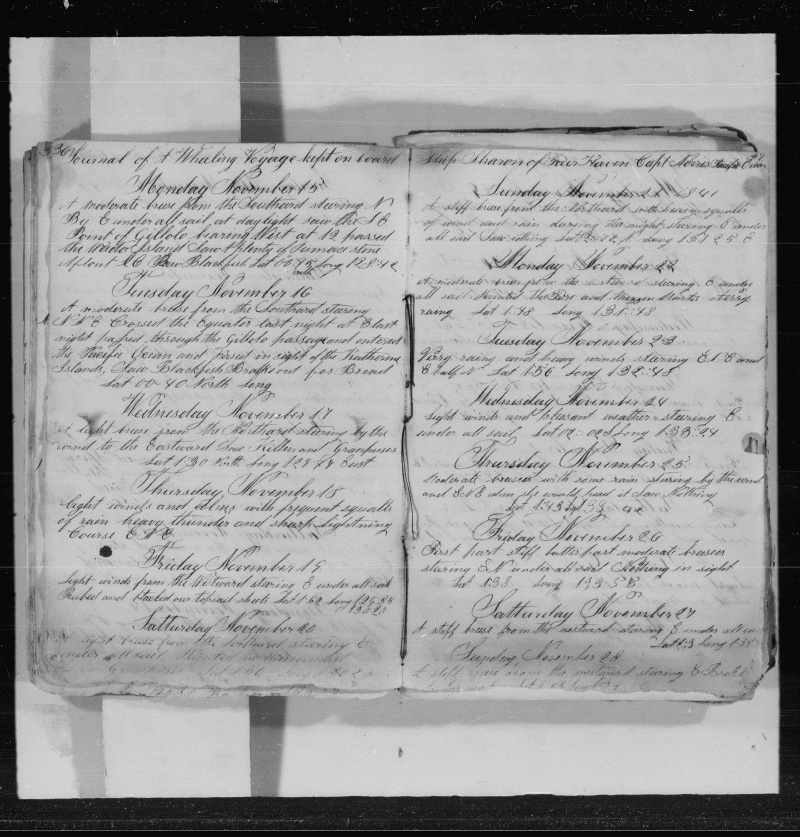 336 Journal of A Whaling Voyage kept on board
Monday November 15
A moderate brese from the Southard stering N
By E under all sail at daylight saw the S E
Point of Gillolo bearing West at 12 passed
the Island Saw Plenty of
26 Saw Blackfish Lat 00 45 Long 128:42
South
Tuesday November 16
A moderate brese from the Southard stering
N N E Crossed the Equator last night at 8 last
night passed through the Gillolo passage and entered
the Pacific Ocean and passed in sight of the
Islands, Saw Blackfish out for Bread
Lat 00-40 North Long
Wednesday November 17
A light brese from the Northard stering by the
wind to the Eastward Saw Killers and Grampuses
Lat 1:30 North Long 129:44 East
Thursday November 18
light winds and calms with frequent squalls
of rain heavy thunder and sharp lightning
Course E N E
Friday November 19
light winds from the Westward stering E under all sail
and our topsail sheets Lat 1:52 Long
Satturday November 20
A light brese from the stering E
under all sail
Lat 1:50 Long
Ship Sharon of Fair Haven Capt Norris Pacific Ocean
Sunday November 21 1841
A stiff brese from the Northward with heavy squalls
of wind and rain during the night stering E under
all sail Saw nothing Lat Long 131 25 E
Monday November 22
A moderat brese from the Westard stering E under
all sail
raing Lat 1:48 Long 131:48
Tuesday November 23
Verry rainy and heavy winds stering E N E and
E half N Lat 1:56 Long 132:48
Wednesday November 24
light winds and pleasent weather stering E
under all sail Lat 02:02 Long 133:24
Thursday November 25
Moderate breeses with some rain stering by the wind
and E N E when she would head it Saw Nothing
Lat 1:43
Friday November 26
First part stiff latter part moderate breeses
stering E N under all sail Nothing in sight
Lat 1:38 Long 135 58
Satturday November 27
A stiff brese from the westard stering E under all sail
Lat 1:3 Long 138
Sunday November 28
A stiff brese from the westard stering E Broke